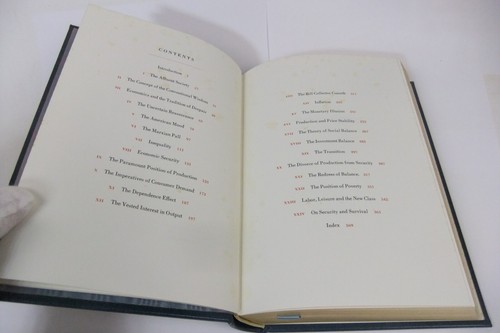 CONTENTS
Introduction
I The Affluent Society
II The Concept of the Conventional Wisdom
III Economics and the Tradition of Despair
IV The Uncertain Reassurance
V The American Mood
VI The Marxian Pall
VII Inequality
VIII Economic Security
IX The Paramount Position of Production
X The Imperatives of Consumer Demand
XI The Dependence Effect
XII The Vested Interest in Output
XIII The Bill Collector Cometh
XIV Inflation
XV The Monetary Illusion
XVI Production and Price Stability
XVII The Theory of Social Balance
XVIII The Investment Balance
XIX The Transition
XX The Divorce of Production from Security
XXI The Redress of Balance
XXII The Position of Poverty
XXIII Labor, Leisure and the New Class
XXIV On Security and Survival
Index